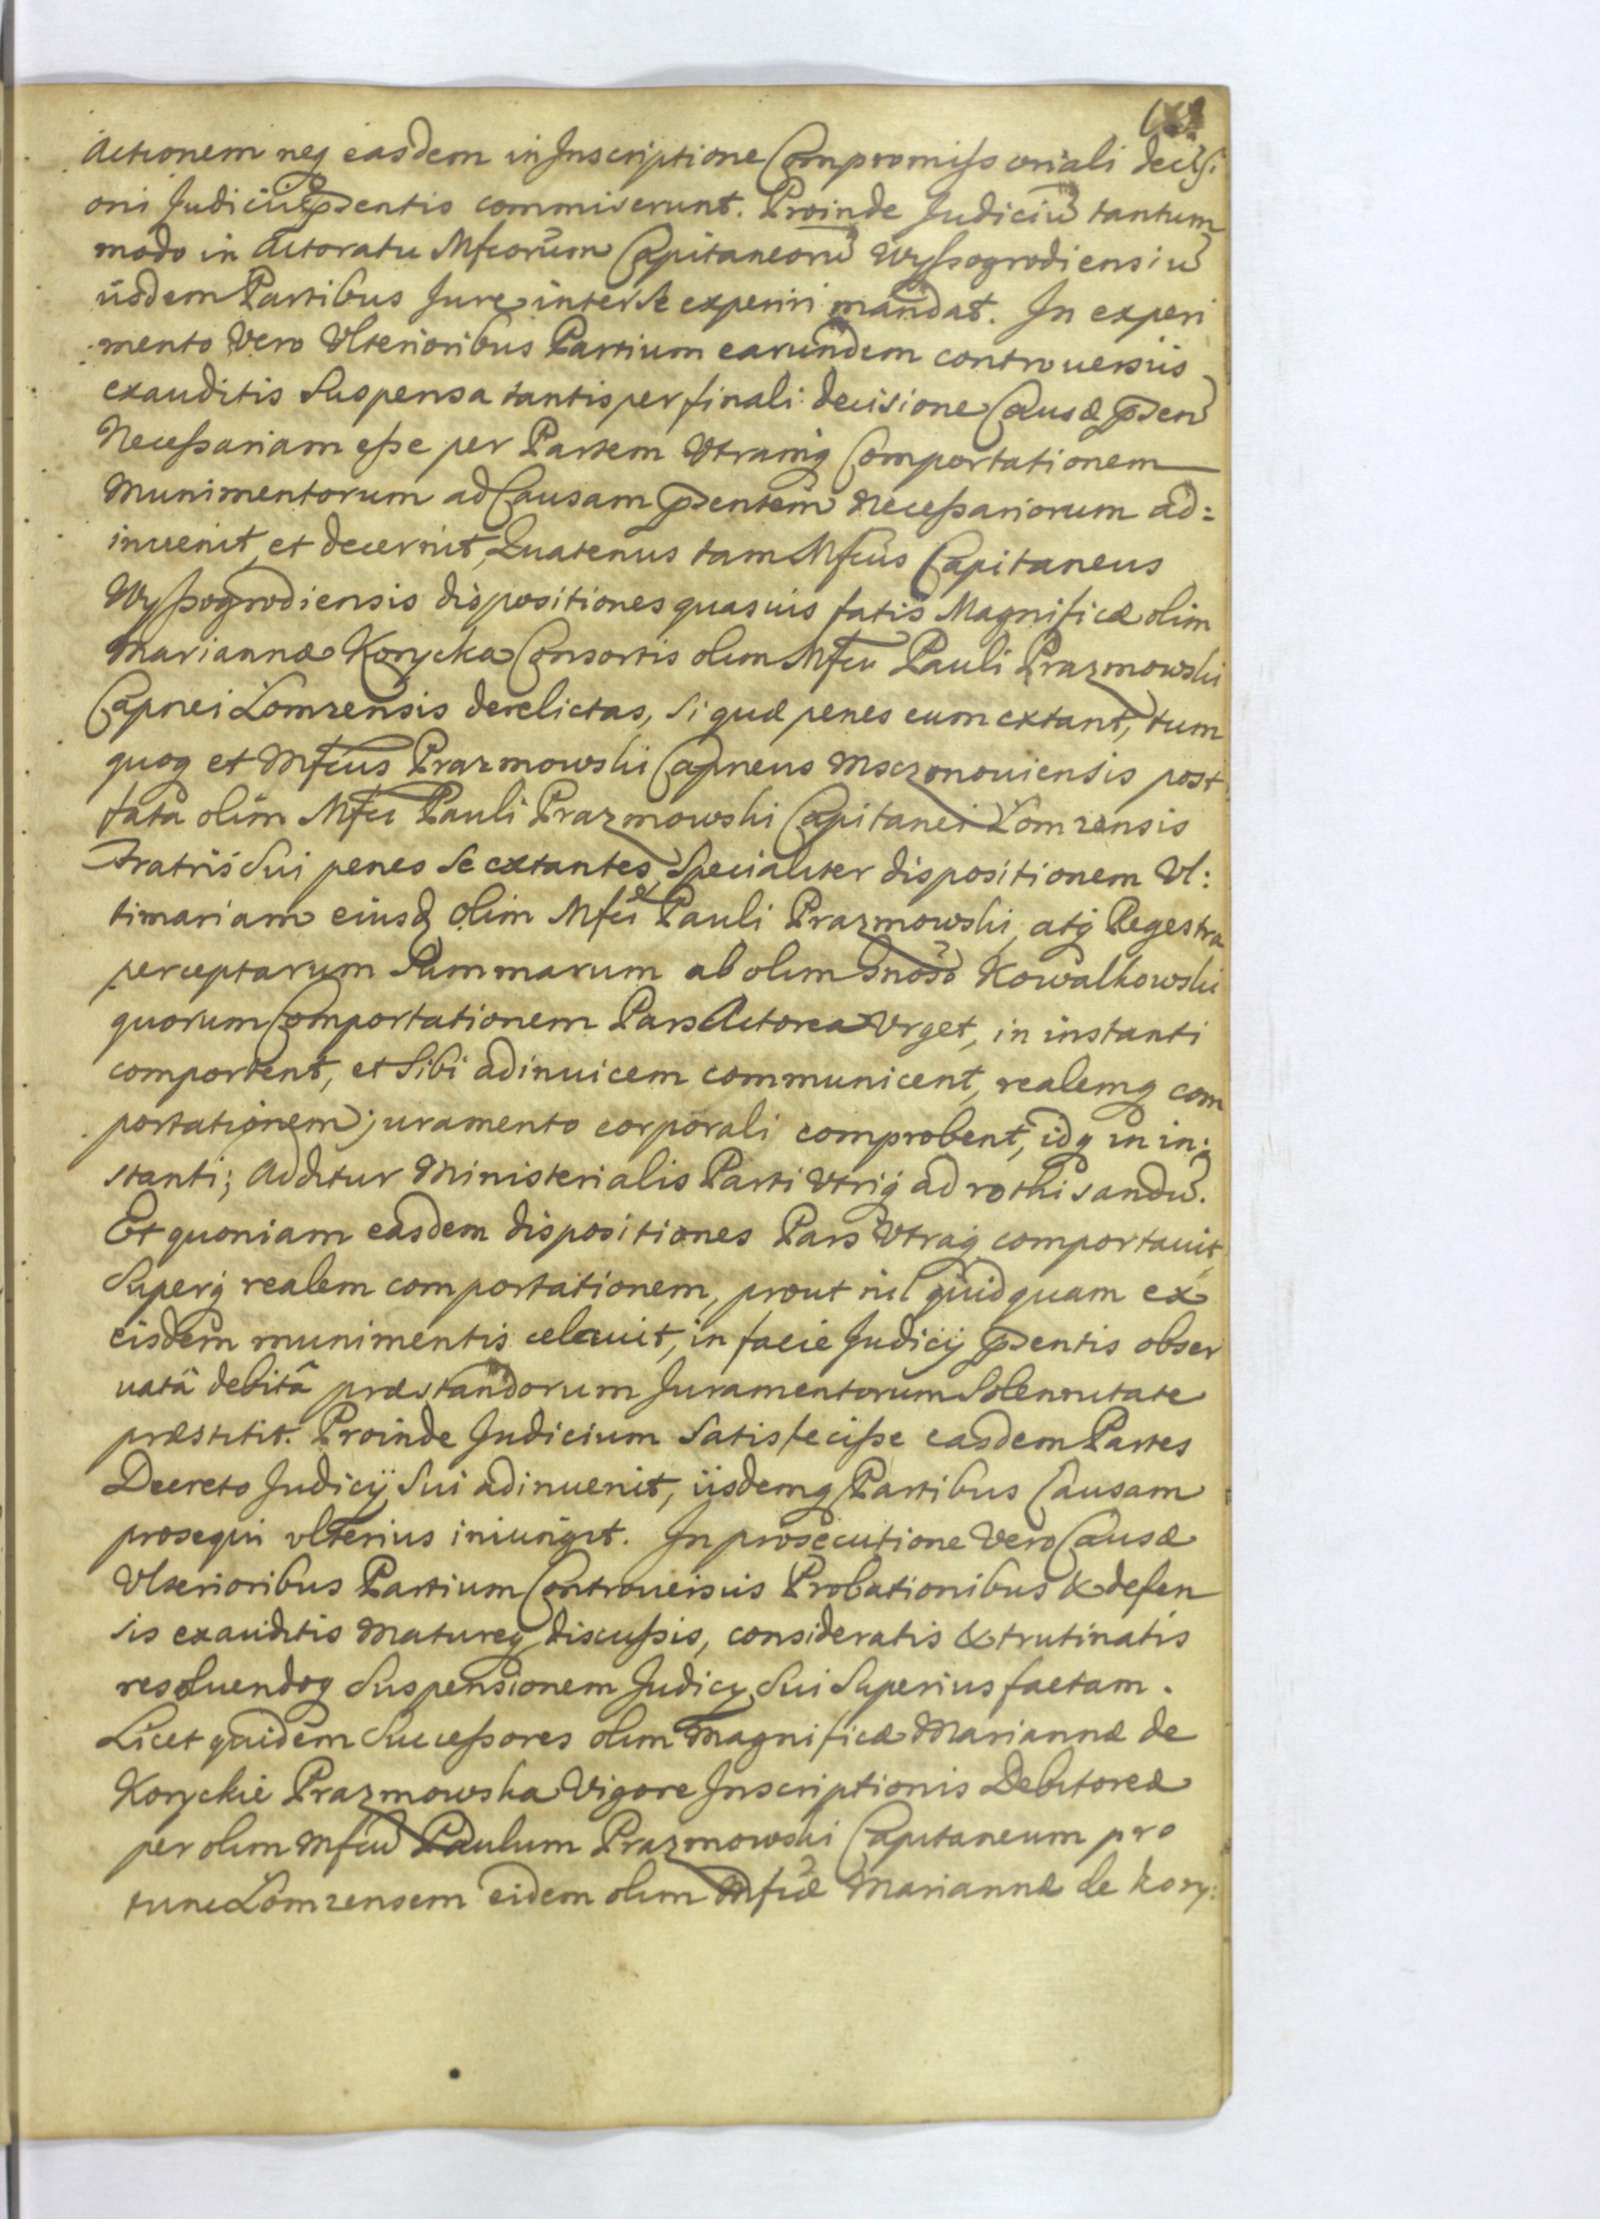 Actionem neq easdem in Inscriptione Compromissoriali decisi
oni Judicii psentis commiserunt. Proinde Judiciu tantum
modo in Actoratu Mfcorum Capitaneoru Wyssogrodiensiu
iisdem Partibus Jure inter se experiri mandat. In experi
mento Vero Vlterioribus Partium earundem controuersiis
exauditis Suspensa tantisper finali decisione Causæ psen
Necessariam esse per Partem Vtramq Comportationem
Munimentorum ad Causam psentem Necessariorum ad:
inuenit, et decernit, Quatenus tam Mfcus Capitaneus
Wyssogrodiensis dispositiones quasuis fatis Magnificæ olim
Mariannæ Korycka Consortis olim Mfci Pauli Prazmowski
Capnei Lomzensis derelictas, si quæ penes eum extant, tum
quoq et Mfcus Prazmowski Capneus Mszczonouiensis post
fata olim Mfci Pauli Prazmowski Capitanei Lomzensis
Fratris Sui penes se extantes, et Specialiter dispositionem Vl:
timariam eiusd olim Mfci Pauli Prazmowski, atq Regestra
perceptarum Summarum ab olim Gnoso Kowalkowski
quorum Comportationem Pars Actorea Vrget, in instanti
comportent, et Sibi adinuicem communicent, realemq com
portationem juramento corporali comprobent, idq in in:
stanti; Additur Ministerialis Parti Vtriq ad rothisandu.
Et quoniam easdem dispositiones Pars Vtraq comportauit,
Superq realem comportationem, prout nil quidquam ex
eisdem munimentis celauit, in facie Judicij psentis obser
uatâ debitâ præstandorum Juramentorum Solennitate
præstitit. Proinde Judicium Satisfecisse easdem Partes
Decreto Judicij Sui adinuenit, iisdemq Partibus Causam
prosequi vlterius iniungit. In prosecutione Vero Causæ
Vlterioribus Partium Controuersiis Probationibus & defen
sis exauditis Matureq discussis, consideratis & trutinatis
resoluendoq Suspensionem Judicij Sui Superius factam.
Licet quidem Successores olim Magnificæ Mariannæ de
Koryckie Prazmowska Vigore Inscriptionis Debitoreæ
per olim Mfcu Paulum Prazmowski Capitaneum pro
tunc Lomzensem eidem olim Mfcæ Mariannæ de Kory: